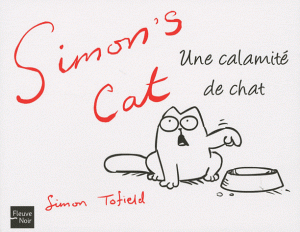 Simon's
Cat
Une calamité
de chat
Simon Tofield
Fleuve
Noir